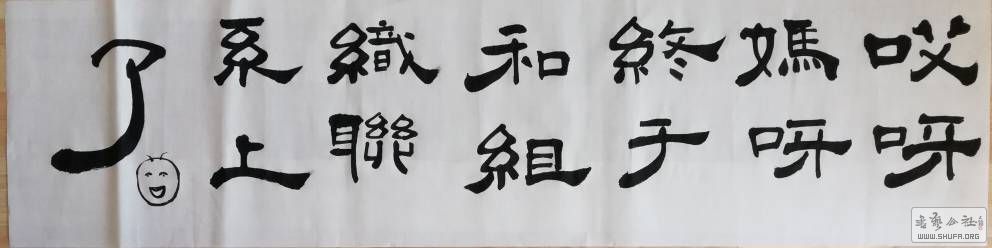 哎呀
媽呀
終于
和組
織聯
系上
了
WWW.SHUFA.ORG